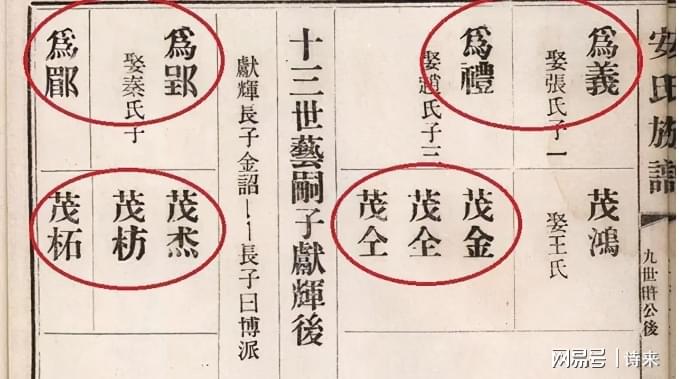 安氏族譜
九世公後
爲義
娶張氏子一
爲禮
娶趙氏子三
茂鴻
娶王氏
茂金
茂全
茂仝
十三世藝嗣子獻輝後
獻輝長子金詔——長子曰博派
爲郢
娶秦氏子
爲
茂杰
茂枋
茂柘
网易号 | 诗来